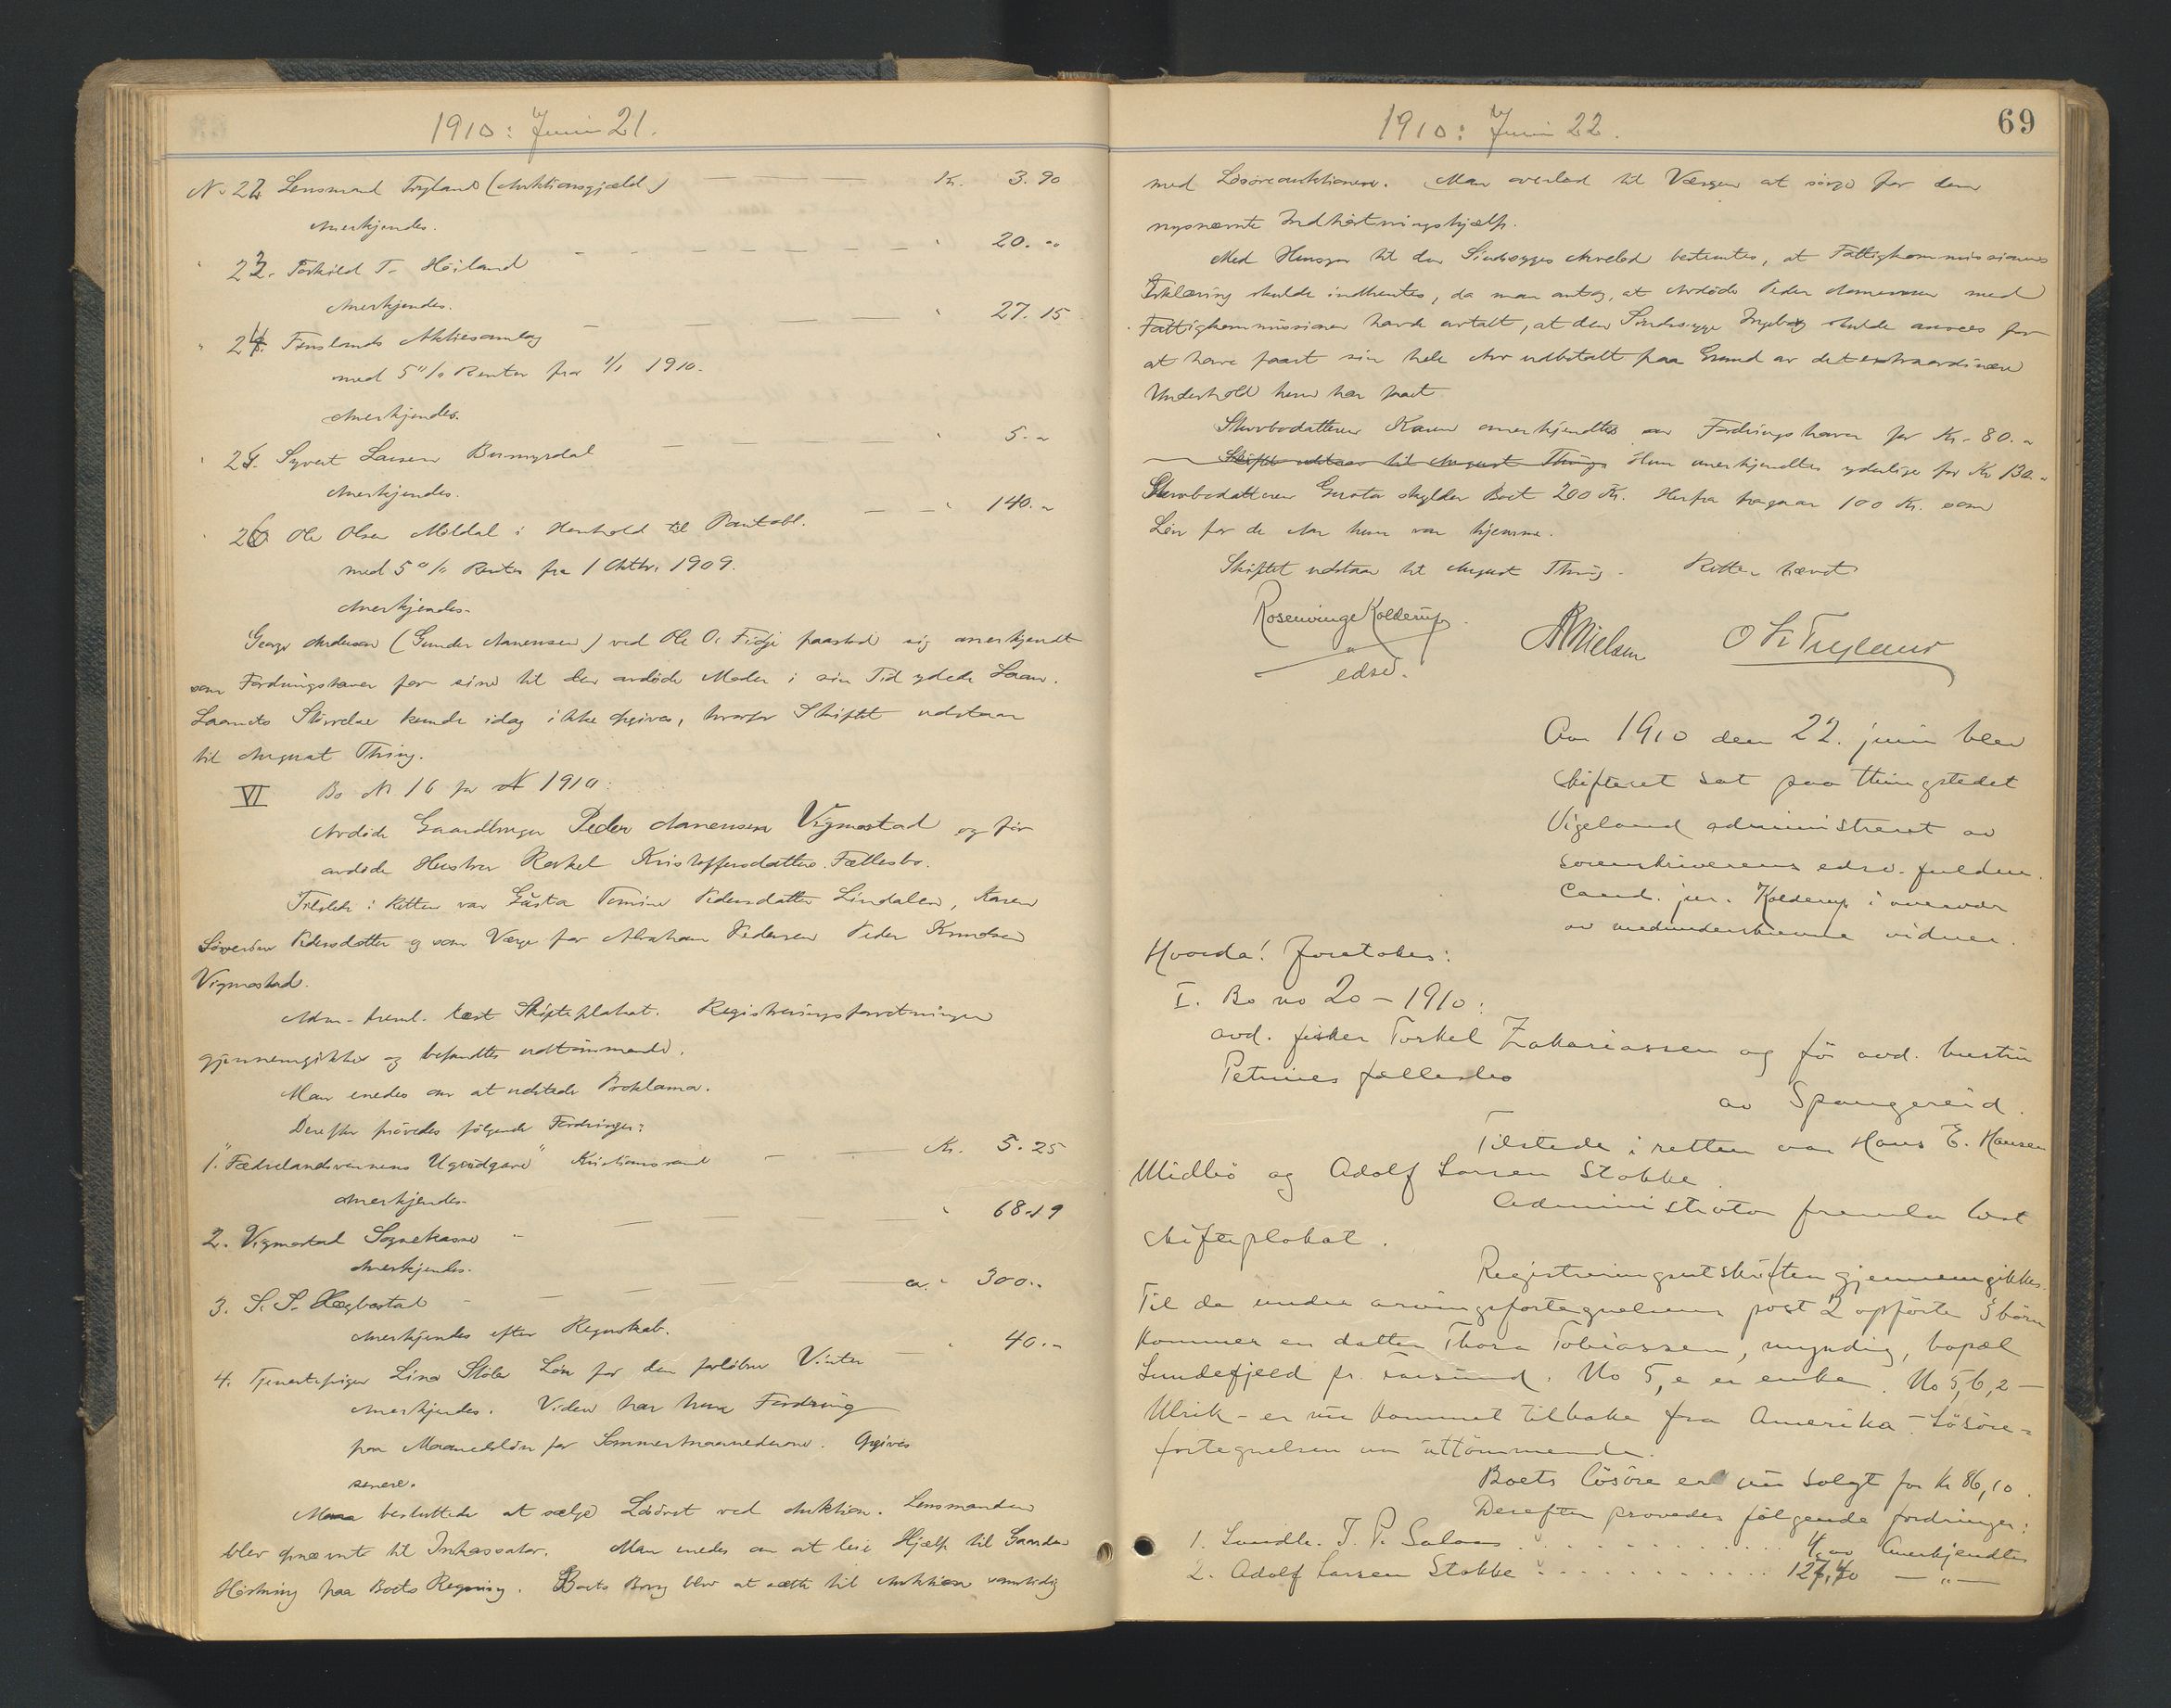 1910: Juni 21.
No 22 Lensmand Tryland (Auktionsgjæld) Kr. 3.90
Anerkjendes.
" 23. Torkild T. Høiland " 20. "
Anerkjendes.
" 24. Finslands Aktiesamlag " 27.15
med 5 % Renter fra 1/1 1910.
Anerkjendes.
" 25. Syvert Larsen " 5. "
Anerkjendes.
" 26 Ole Olsen Møldal i Henhold til Pantobl. " 140. "
med 5 % Renter fra 1 Oktbr. 1909.
Anerkjendes.
Georg Andersen (Gunder Aanensen) ved Ole O. Fidje paastod sig anerkjendt
som Fordringshaver for sine til den avdøde Moder i sin Tid ydede Laan.
Laanets Størrelse kunde idag ikke opgives, hvorfor Skiftet udstaar
til August Thing.
VI Bo No 16 for 1910:
Avdøde Gaardbruger Peder Aanensen Vigmostad og før
avdøde Hustru Rakel Kristoffersdatters Fællesbo.
Tilstede i Retten var Gusta Tomine Pedersdatter Lindalen, Karen
Severine Pedersdatter og som Værge for Abraham Pedersen Peder Knudsen
Vigmostad.
Adm. freml. læst Skifteplakat. Registreringsforretningen
gjennemgikkes og befandtes udtømmende.
Man enedes om at udstede Proklama.
Derefter prøvedes følgende Fordringer:
1. "Fædrelandsvennens Ugeudgave" Kristianssand Kr. 5.25
Anerkjendes.
2. Vigmostad Sognekasse " 68.19
Anerkjendes.
3. S. S. Hægbostad ca. " 300. "
Anerkjendes efter Regnskab.
4. Tjenestepigen Lina Støle Løn for den forløbne Vinter " 40. "
Anerkjendes. Viden har hun Fordring
paa Maanedsløn for Sommermaanederne. Opgives
senere.
Man besluttede at sælge Løsøret ved Auktion. Lensmanden
blev opnævnt til Inkassator. Man enedes om at leie Hjælp til Gaardens
Høstning paa Boets Regning. Boets Borg blev at sætte til Auktion samtidig
1910: Juni 22.
69
med Løsøreauktionen. Man overlod til Værgen at sørge for den
nysnævnte Indhøstningshjælp.
Med Hensyn til den Sindssyges Arvelod bestemtes, at Fattigkommissionens
Erklæring skulde indhentes, da man antog, at Avdøde Peder Aanensen med
Fattigkommissionen havde avtalt, at den Sindssyge Ingeborg skulde ansees for
at have faaet sin hele Arv udbetalt paa Grund av det extraordinære
Underhold hun har faaet.
Stervbodatteren Karen anerkjendtes som Fordringshaver for Kr. 80. "
Skiftet udstaar til August Thing. Hun anerkjendtes yderligere for Kr 130. "
Stervbodatteren Gusta skylder Boet 200 Kr. Herfra fragaar 100 Kr. som
Løn for de Aar hun var hjemme.
Skiftet udstaar til August Thing. Retten hævet.
Rosenvinge Kolderup
edsv.
A Nielsen O K Tryland
Aar 1910 den 22. juni blev
skifteret sat paa thingstedet
Vigeland administreret av
sorenskriverens edsv. fuldm.
Cand. jur. Kolderup i overvær
av medunderskrevne vidner.
Hvorda! foretokes:
I. Bo no 20 - 1910:
avd. fisker Torkel Zakariassen og før avd. hustru
Petrines fællesbo
av Spangereid.
Tilstede i retten var Hans E. Hansen
Midbø og Adolf Larsen Stokke.
Administrator fremla læst
skifteplakat.
Registreringsutskriften gjennemgikkes.
Til de under arvingsfortegnelsens post 2 opførte 5 børn
kommer en datter Thora Tobiassen, myndig, bopæl
Lundefjeld pr. Farsund. No 5, e er enke. No 5, b, 2 -
Ulrik - er nu kommet tilbake fra Amerika. - Løsøre-
fortegnelsen var uttømmende.
Boets løsøre er nu solgt for kr 86,10.
Derefter prøvedes følgende fordringer:
1. Landh. T. P. Salve 4,00 Anerkjendtes
2. Adolf Larsen Stokke 127,40 — " —